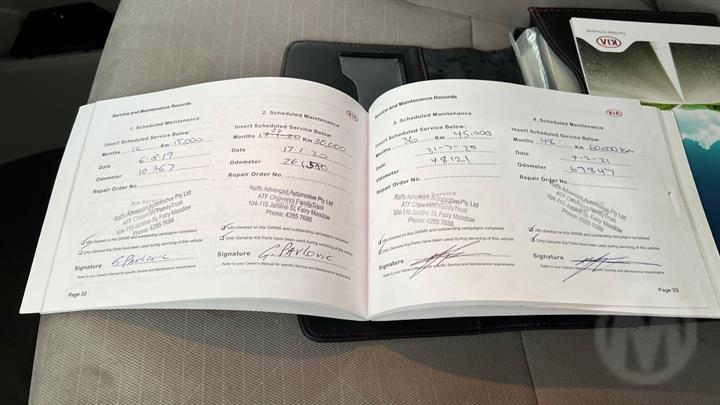 Service and Maintenance Records
KIA
1. Scheduled Maintenance
Insert Scheduled Service Below:
Months 12 Km 15,000
Date 6-8-19
Odometer 10.367
Repair Order No.
Kia Service
Raffs Advanced Automotive Pty Ltd
ATF Chiavrini Family Trust
104-110 Jardine St, Fairy Meadow
Phone: 4285 7686
VIN checked on Kia GWMS and outstanding campaigns completed
Only Genuine Kia Parts have been used during servicing of this vehicle
Signature G.Pavlovic
Refer to your Owner's Manual for specific Service and Maintenance requirements
Page 32
2. Scheduled Maintenance
Insert Scheduled Service Below:
Months 24 Km 30,000
Date 17.1.20
Odometer
Repair Order No.
Raffs Advanced Automotive Pty Ltd
ATF Chiavrini Family Trust
104-110 Jardine St, Fairy Meadow
Phone: 4285 7686
VIN checked on Kia GWMS and outstanding campaigns completed
Only Genuine Kia Parts have been used during servicing of this vehicle
Signature G. Pavlovic
Refer to your Owner's Manual for specific Service and Maintenance requirements
Service and Maintenance Records
KIA
3. Scheduled Maintenance
Insert Scheduled Service Below:
Months 36 Km 45,000
Date 31-7-20
Odometer 48121
Repair Order No.
Kia Service
Raffs Advanced Automotive Pty Ltd
ATF Chiavrini Family Trust
104-110 Jardine St, Fairy Meadow
Phone: 4285 7686
VIN checked on Kia GWMS and outstanding campaigns completed
Only Genuine Kia Parts have been used during servicing of this vehicle
Signature
Refer to your Owner's Manual for specific Service and Maintenance requirements
4. Scheduled Maintenance
Insert Scheduled Service Below:
Months 48 Km 60,000km
Date 4-2-21
Odometer 69847
Repair Order No.
Raffs Advanced Automotive Pty Ltd
ATF Chiavrini Family Trust
104-110 Jardine St, Fairy Meadow
Phone: 4285 7686
VIN checked on Kia GWMS and outstanding campaigns completed
Only Genuine Kia Parts have been used during servicing of this vehicle
Signature
Refer to your Owner's Manual for specific Service and Maintenance requirements
Page 33
The Power to Surprise
KIA
M